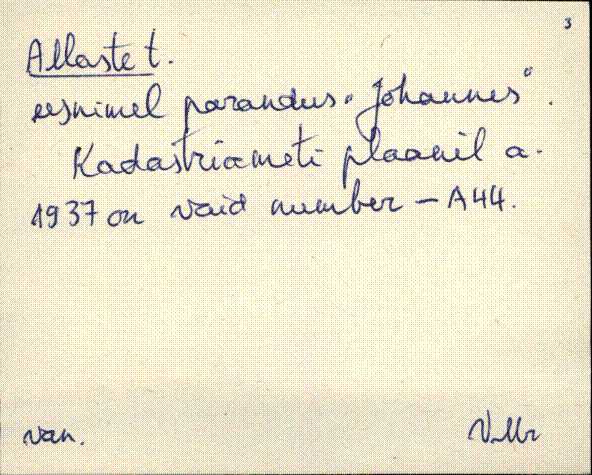 3
Allaste t.
eesnimel parandus "Johannes".
Kadastriameti plaanil a.
1937 on vaid number - A44.
van. V.Mr